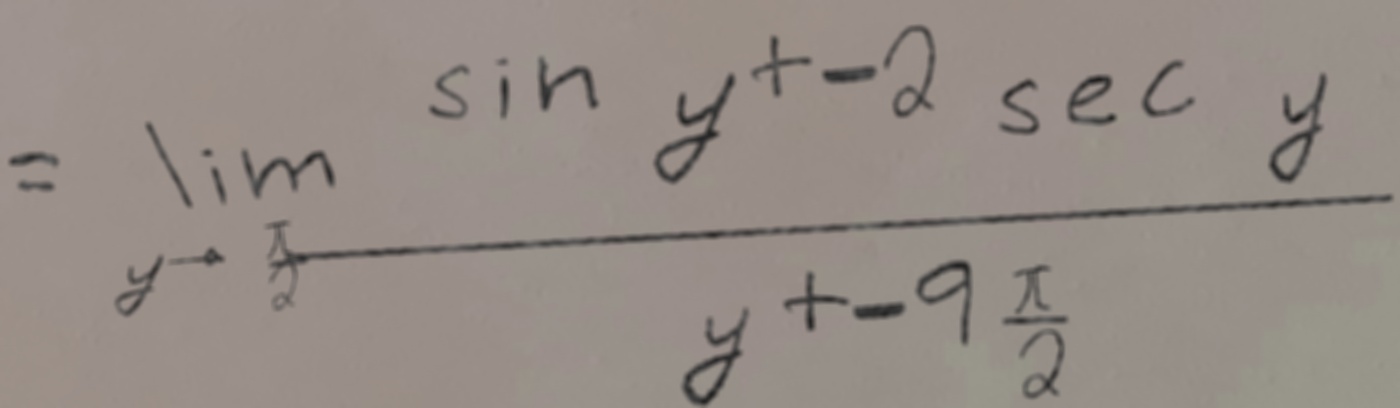 = \lim_{y \to \frac{\pi}{2}} \frac{\sin y + -2 \sec y}{y + -9 \frac{\pi}{2}}